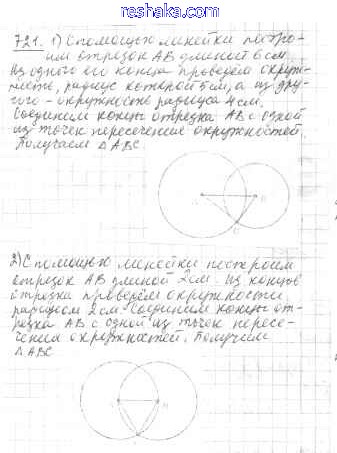 www.reshaka.com
721. 1) С помощью линейки постро-
им отрезок AB длиной 6 см.
Из одного его конца проведём окруж-
ность, радиус которой 5 см, а из дру-
гого - окружность радиуса 4 см.
Соединим концы отрезка AB с одной
из точек пересечения окружностей.
Получаем △ABC.
A B
C
2) С помощью линейки построим
отрезок AB длиной 2 см. Из концов
отрезка проведём окружности
радиусом 2 см. Соединим концы от-
резка AB с одной из точек пересе-
чения окружностей. Получим
△ABC